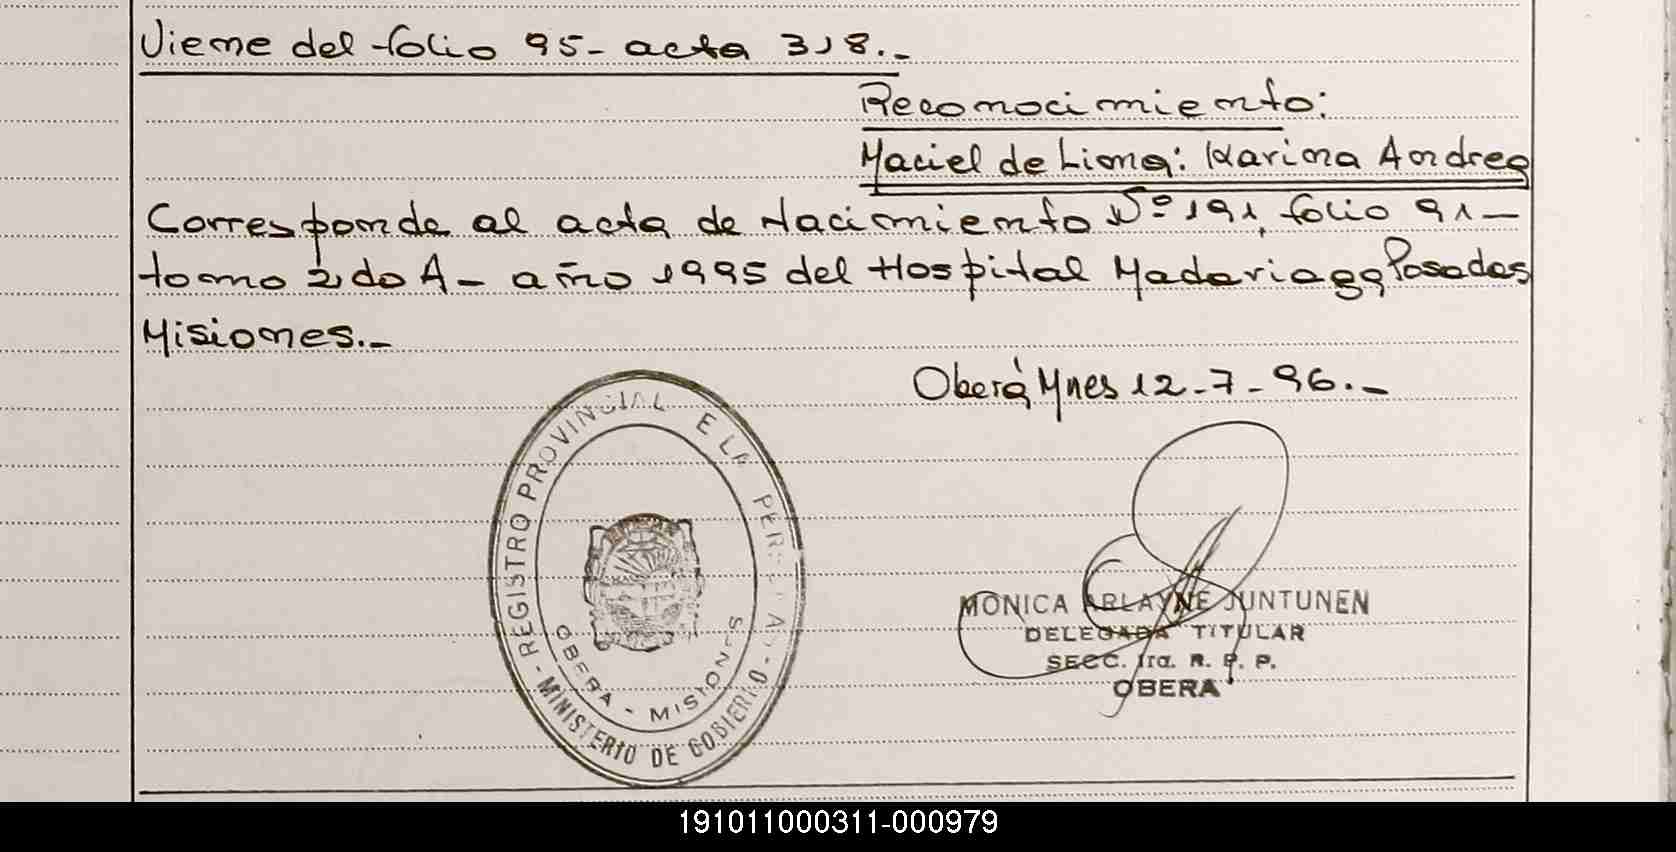 Viene del folio 95- acta 318.-
Reconocimiento:
Maciel de Lima: Karina Andrea
Corresponde al acta de Nacimiento Nº 191, folio 91-
tomo 2do A- año 1995 del Hospital Madariaga Posadas
Misiones.-
Oberá Mnes 12-7-96.-
REGISTRO PROVINCIAL E LA PERS
OBERA - MISIONES
- MINISTERIO DE GOBIERNO -
MONICA ARLAYNE JUNTUNEN
DELEGADA TITULAR
SECC. 1ra. R. P. P.
OBERA
191011000311-000979